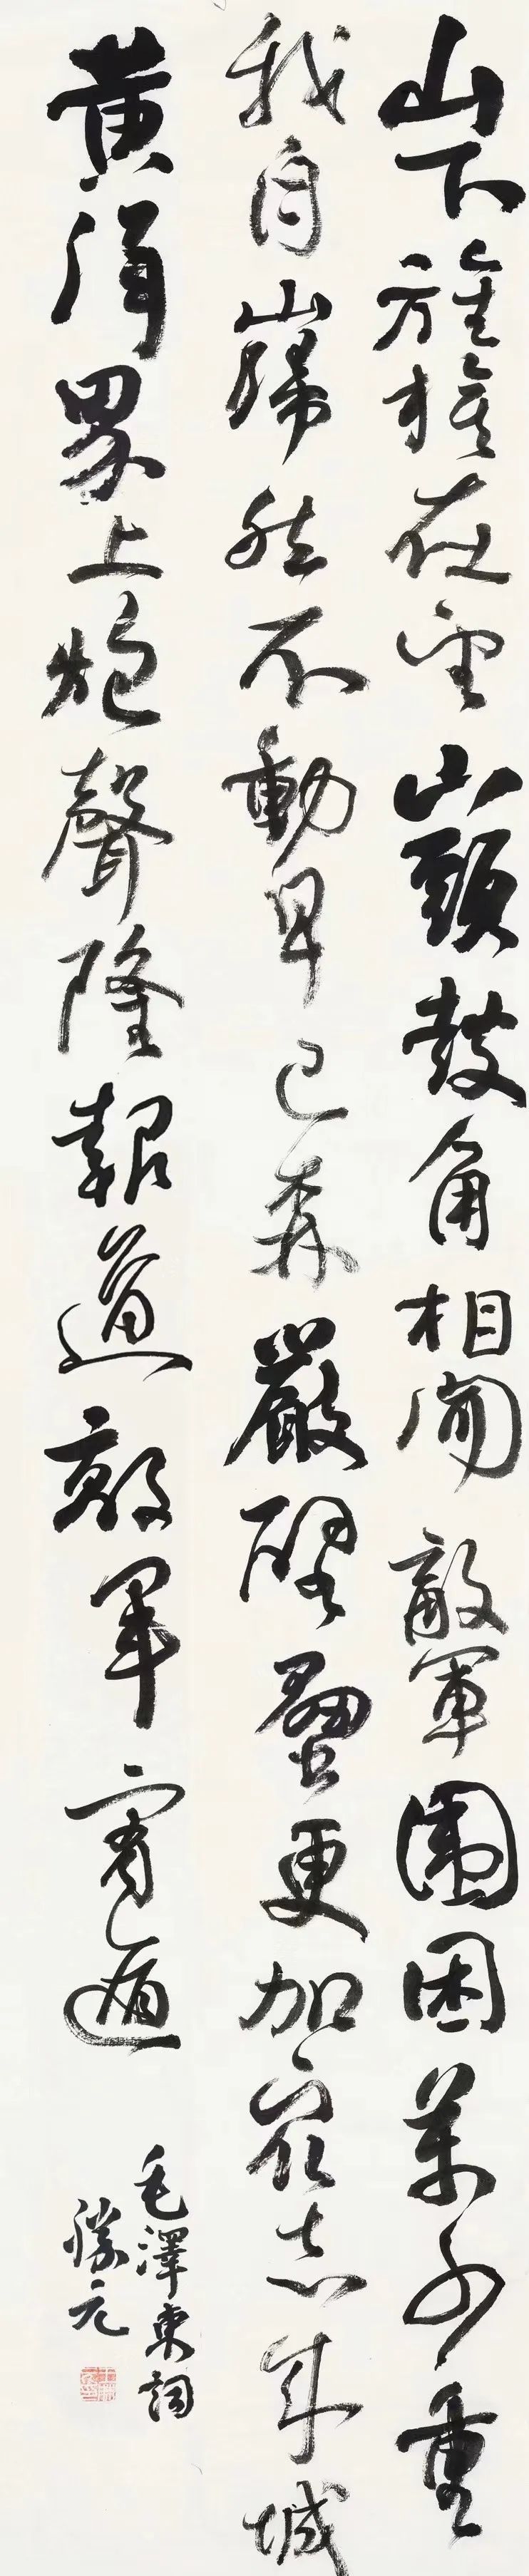 山下旌旗在望山頭鼓角相聞敵軍圍困萬千重
我自巋然不動早已森嚴壁壘更加衆志成城
黄洋界上炮聲隆報道敵軍宵遁
毛澤東詞
勝元